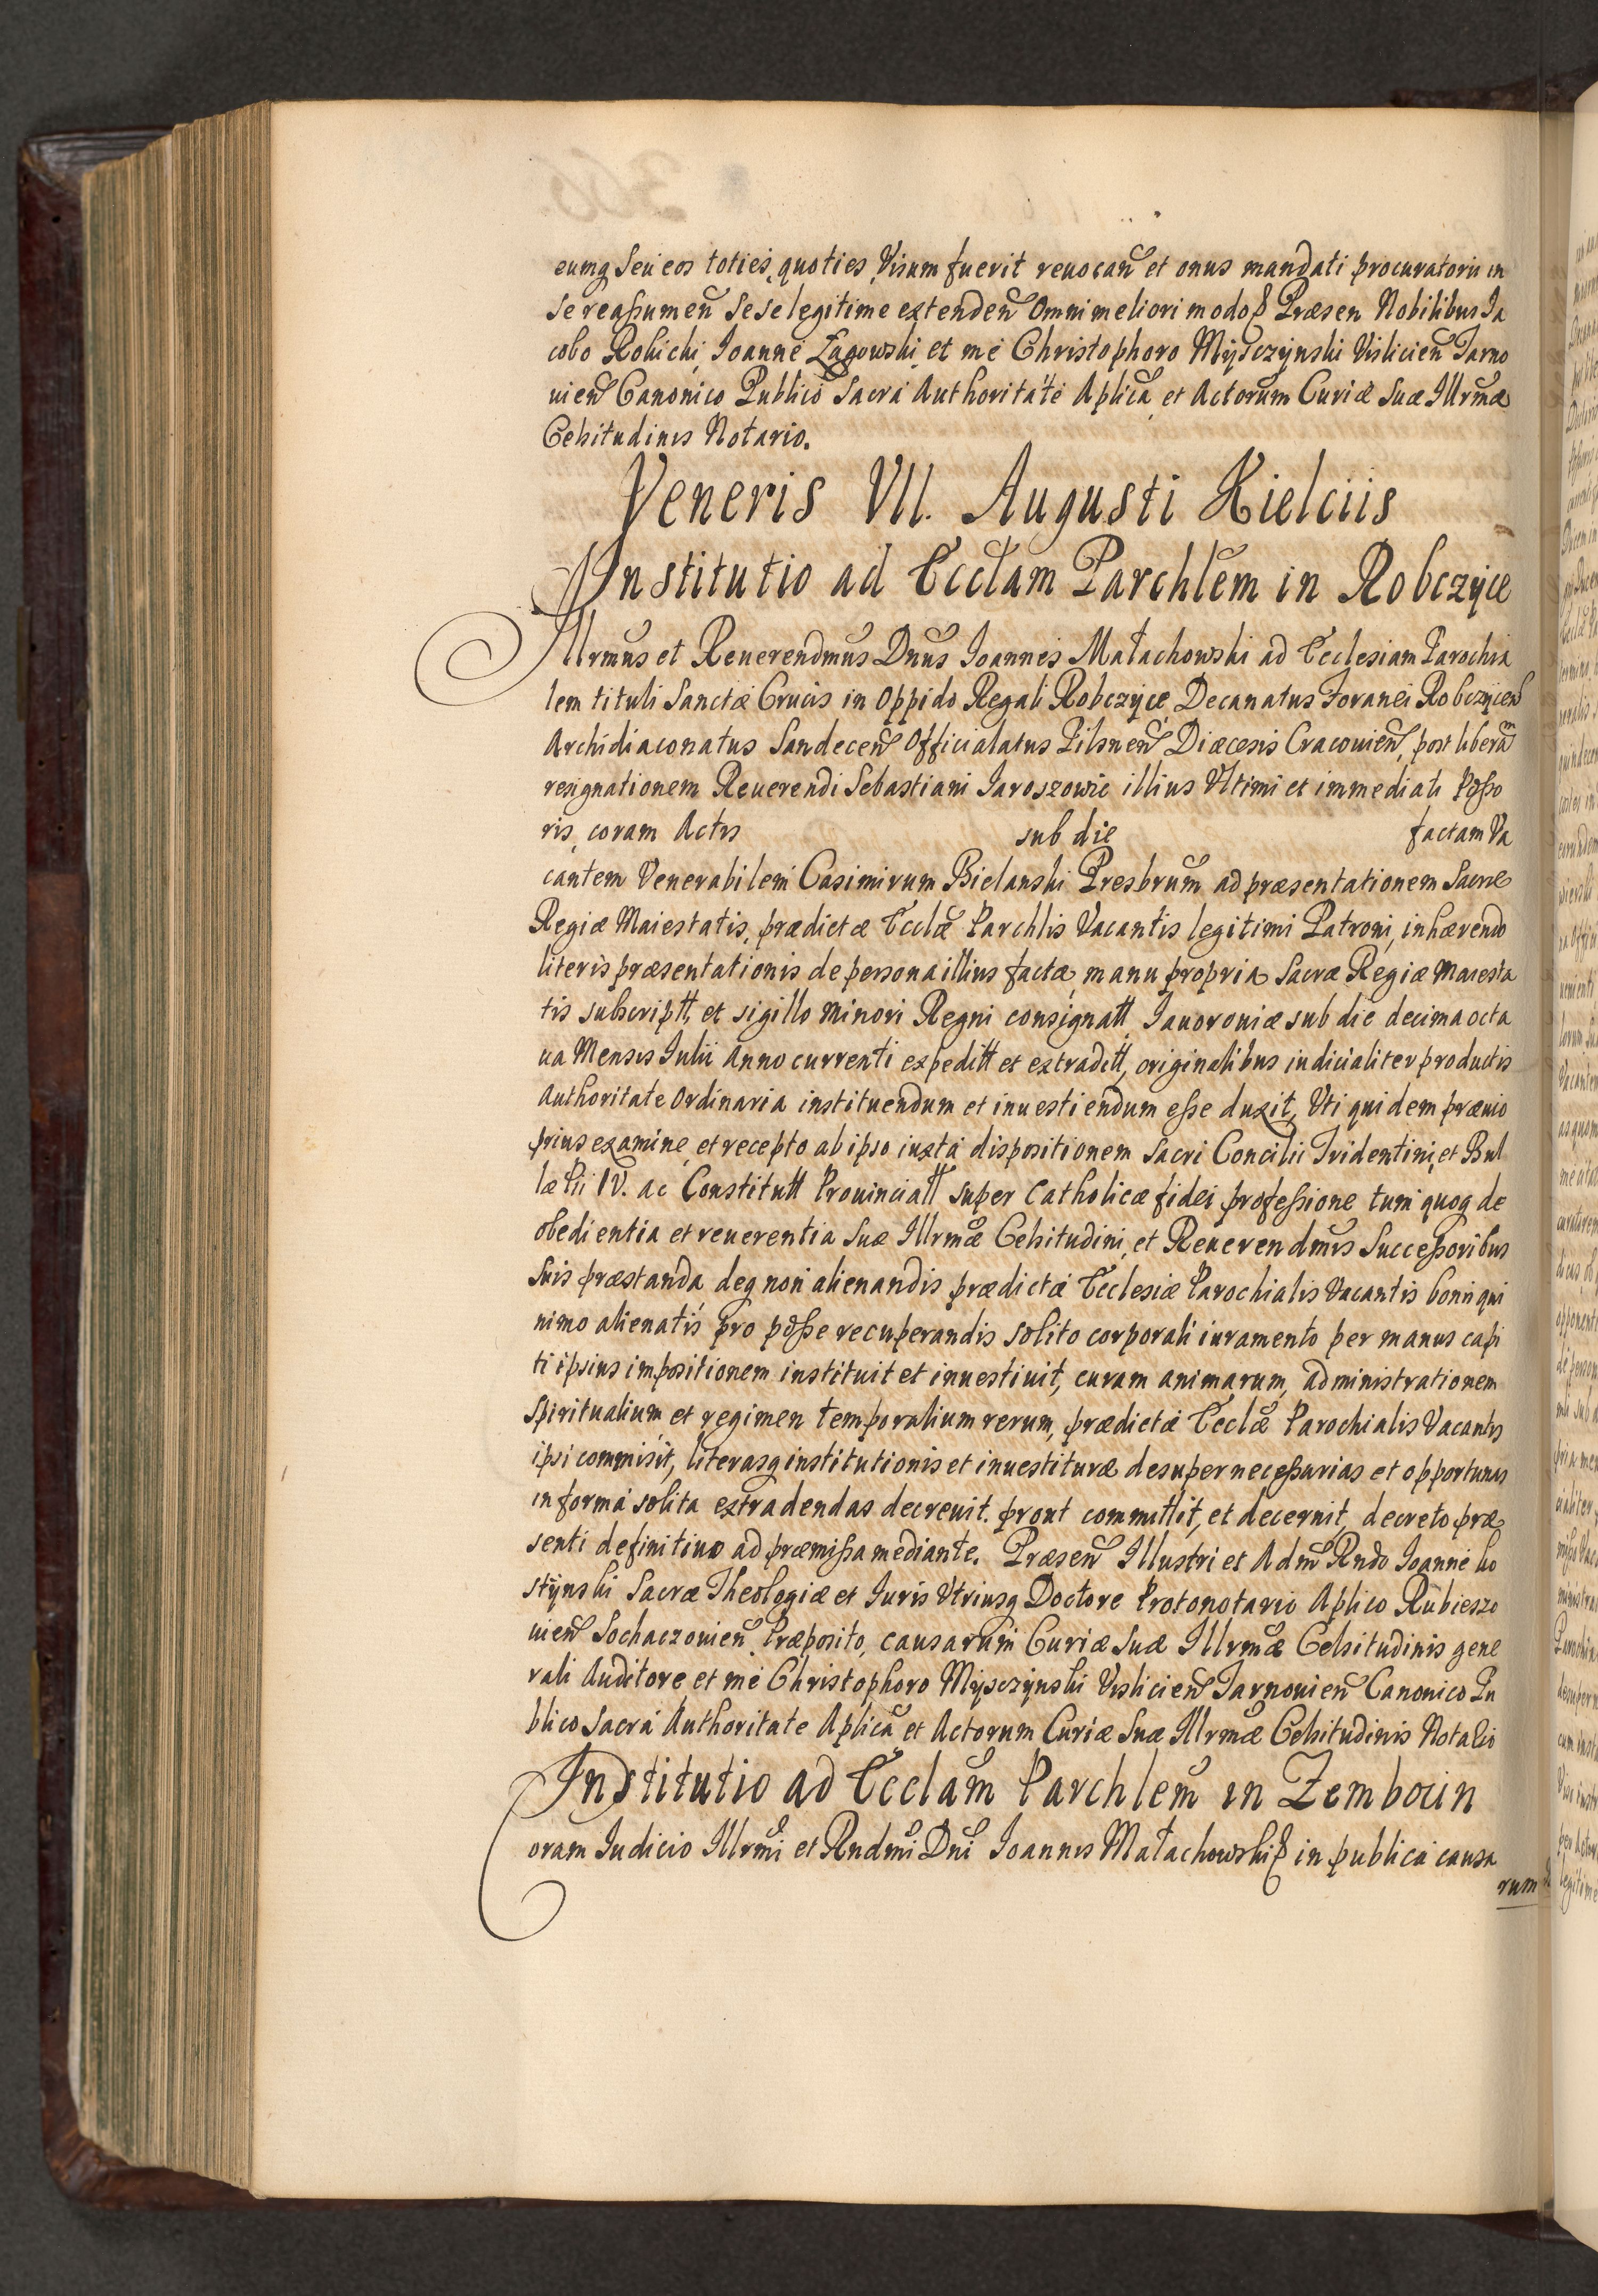 eumq seu eos toties quoties Visum fuerit reuocan̄ et onus mandati procuratorii in
se reaßumen̄ sese legitime extenden̄ Omni meliori modo Præsen Nobilibus Ia
cobo Rokicki Ioanne Łagowski et me Christophoro Mÿsczÿnski Visliciēn Tarno
uien̄ Canonico Publico Sacra Authoritate Aplica et Actorum Curiæ Suæ Illrmæ
Celsitudinis Notario.
Veneris VII. Augusti Kielciis
Institutio ad Ecclam Parchlem in Robczÿce
Illrmus et Reuerendmus Dnus Ioannes Małachowski ad Ecclesiam Parochia
lem tituli Sanctæ Crucis in Oppido Regali Robczÿce Decanatus Foranei Robczÿcen̄
Archidiaconatus Sandecen̄ Officialatus Pilsnen̄ Diæcesis Cracouien̄, post liberam
resignationem Reuerendi Sebastiani Iaroszowic illius Vltimi et immediati Poßo
ris, coram Actis sub die factam Va
cantem Venerabilem Casimirum Bielanski Presbrum ad præsentationem Sacræ
Regiæ Maiestatis, prædictæ Ecclæ Parchlis Vacantis legitimi Patroni, inhærendo
literis præsentationis de persona illius factæ, manu propria Sacræ Regiæ Maiesta
tis subscriptt, et sigillo Minori Regni consignatt Iauorouiæ sub die decima octa
ua Mensis Iulii Anno currenti expeditt et extraditt, originalibus iudicialiter productis
Authoritate Ordinaria instituendum et inuestiendum eße duxit, Vti quidem præuio
prius examine, et recepto ab ipso iuxta dispositionem Sacri Concilii Tridentini, et Bul
læ Pii IV. ac Constitutt Prouinciatt super Catholicæ fidei profeßione tum quoq de
obedientia et reuerentia Suæ Illrmæ Celsitudini, et Reuerendmis Succeßoribus
Suis præstanda, deq non alienandis prædictæ Ecclesiæ Parochialis Vacantis bonis qui
nimo alienatis pro poße recuperandis solito corporali iuramento per manus capi
ti ipsius impositionem instituit et inuestiuit, curam animarum, administrationem
Spiritualium, et regimen temporalium rerum, prædictæ Ecclæ Parochialis Vacantis
ipsi commisit, literasq institutionis et inuestituræ desuper neceßarias et opportunas
in forma solita extradendas decreuit. prout committit, et decernit, decreto præ
senti definitiuo ad præmißa mediante. Præsen̄ Illustri et Adm̄ Rndo Ioanne Ło
stÿnski Sacræ Theologiæ et Iuris Vtriusq Doctore Protonotario Aplico Rubieszo
uien̄ Sochaczouien̄ Præposito, causarum Curiæ Suæ Illrmæ Celsitudinis gene
rali Auditore et me Christophoro Mÿsczÿnski Vislicien̄ Tarnouien̄ Canonico Pu
blico Sacra Authoritate Aplica et Actorum Curiæ Suæ Illrmæ Celsitudinis Notario
Institutio ad Ecclam Parchlem in Zembocin
Coram Iudicio Illrmi et Rndmi Dni Ioannis Małachowski in publica causa
rum